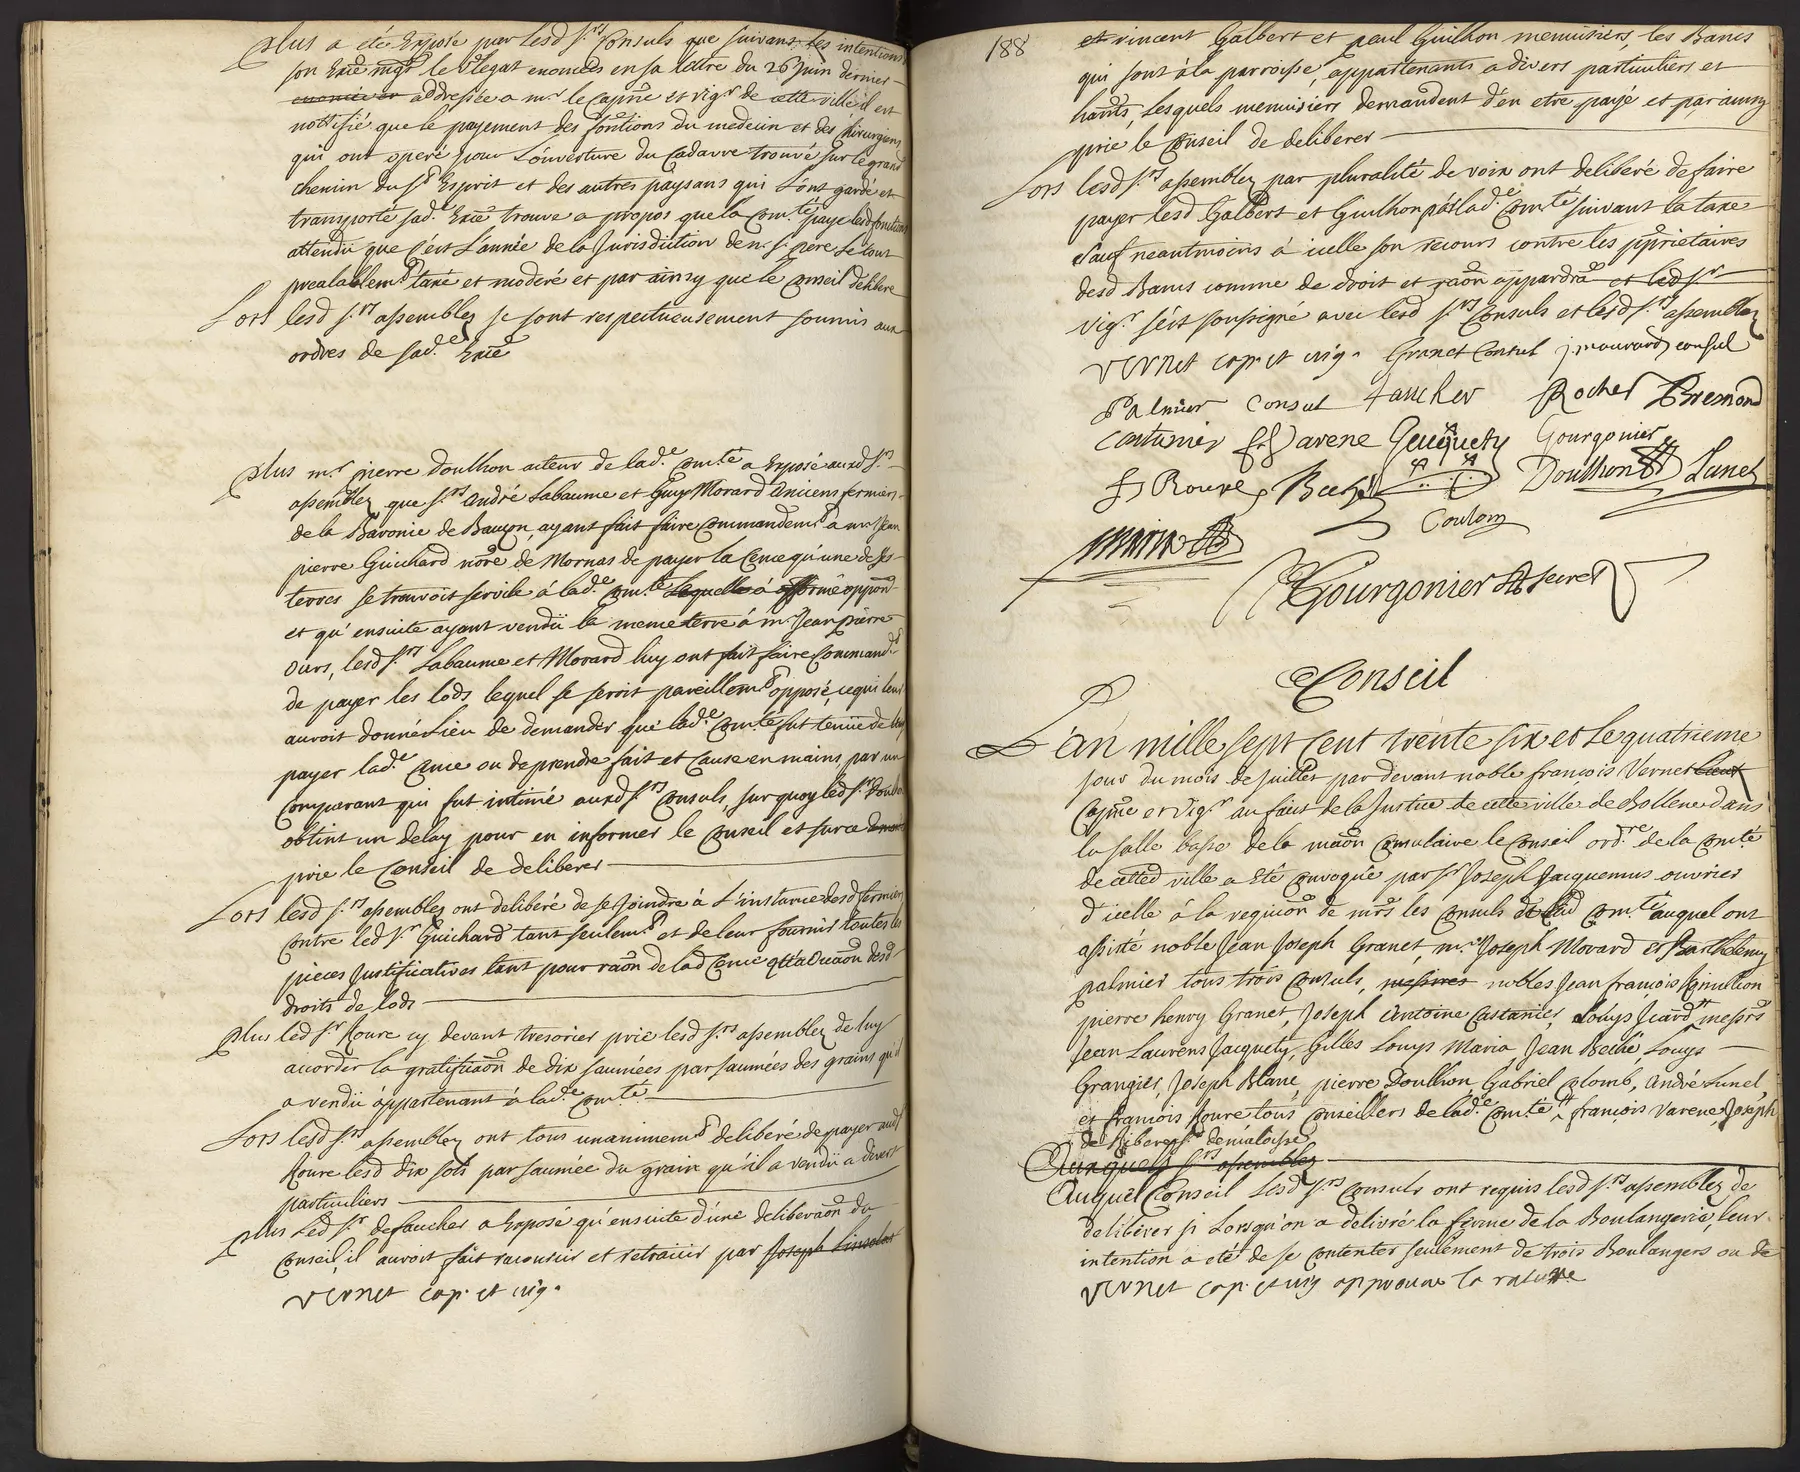 plus a été Exposé par lesd s.rs Consuls que suivant les intentions
son Exce mgr le vlegat enoncées en sa lettre du 26 Juin dernier
enoncée en addressée a mr le Capne et vigr de cette ville il est
nottifié que le payement des fontions du medecin et des chirurgiens
qui ont operé pour L'ouverture du Cadavre trouvé sur le grand
chemin du St Esprit et des autres paysans qui L'ont gardé et
transporté sad.e Exce trouve a propos que la Com.té paye lesd fonctions
attendu que C'est L'année de la Jurisdiction de n. s. pere Le tout
prealablemt taxé et moderé et par ainsy que le Conseil delibere
Lors lesd s.rs assemblez se sont respectueusement soumis aux
ordres de sad.e Exce
plus m.r pierre Doulhon acteur de lad.e Com.té a Exposé auxd s.rs
assemblez que s.rs andré Labaume et Guys Morard anciens fermiers
de la Baronie de Bauzon, ayant fait faire Commandemt a mr Jean
pierre Guichard nore de Mornas de payer la Cence qu'une de ses
terres se trouvoit servile à lad.e Com.té Lequelle à
et qu'ensuite ayant vendü la meme terre à m.r Jean pierre
ours, lesd s.rs Labaume et Morard luy ont fait faire Command.t
de payer les lods lequel se seroit pareillemt opposé, ce qui leur
auroit donné Lieu de demander que lad.e Com.té fut tenüe de leur
payer lad.e Cence ou de prendre fait et Cause en mains, par un
Comparant qui fut intimé auxd s.rs Consuls, sur quoy led s.r Doulhon
obtint un delay pour en informer le Conseil et sur ce
prie le Conseil de deliberer
Lors lesd s.rs assemblez ont deliberé de se Joindre à L'instance desd fermiers
contre led s.r Guichard tant seulemt et de leur fournir toutes les
pieces Justificatives tant pour raon de lad Cence qu'a raon desd
droits de lods
plus led s.r Roure cy devant tresorier prie lesd s.rs assemblez de luy
accorder la gratificaon de dix saumées par saumées des grains qu'il
a vendü appartenant à lad.e Com.té
Lors lesd s.rs assemblez ont tous unanimemt deliberé de payer aud
Roure lesd dix sols par saumée du grain qu'il a vendü a divers
particuliers
plus Led s.r defaucher a Exposé qu'ensuite d'une deliberaon du
Conseil, il auroit fait racourcir et retraicir par Joseph
vernet cap. et vig.
188
et vincent Galbert et paul Guilhon menuisiers, les Bancs
qui sont à la parroisse, appartenants a divers particuliers et
hants, lesquels menuisiers demandent d'en etre payé et par ainsy
prie le Conseil de deliberer
Lors lesd s.rs assemblez par pluralité de voix ont deliberé de faire
payer lesd Galbert et Guilhon par lad.e Com.té suivant la taxe
sauf neantmoins à icelle son recours contre les pprietaires
desd Bancs comme de droit et raon appardra et led s.r
vig.r s'est soussigné avec lesd s.rs Consuls et lesd s.rs assemblez
vernet cap. et vig. Granet Consul j. mouvard consul
Palmier consul faucher Rocher Bremond
Castanier ff Varene Jacquety Gourgonier
f Roure Bechel Doulhon Lunel
Coulom
maria
Gourgonier secret
Conseil
L'an mille sept cent trente six et Le quatrieme
Jour du mois de Juillet par devant noble francois Vernet
Capne et vig.r au fait de la Justice de cette ville de Bollene dans
la salle basse de la maon Consulaire le Conseil ord.re de la Comté
de cetted ville a eté Convoqué par sr Joseph Jacquemus ouvrier
d'icelle à la requion de mrs les Consuls de lad Com.té auquel ont
assisté noble Jean Joseph Granet, m.e Joseph Movard et Barthelemy
palmier tous trois Consuls, messires nobles Jean francois
pierre henry Granet, Joseph Antoine Castanier, Louys Icard, messrs
Jean Laurens Jacquety, Gilles Louys Maria, Jean Beché Louys
Grangier, Joseph Blanc, pierre Doulhon, Gabriel Colomb, André Lunel,
et francois Roure tous Conseillers de lad.e Comté francois Varene, Joseph
de Riberes s.r demaloisse
Auxquels s.rs assemblez
Auquel Conseil Lesd s.rs Consuls ont requis lesd s.rs assemblez de
deliberer si Lorsqu'on a delivré la ferme de la Boulangerie, leur
intention a eté de se contenter seulement de trois Boulangers ou de
vernet cap. et vig approuve la rature